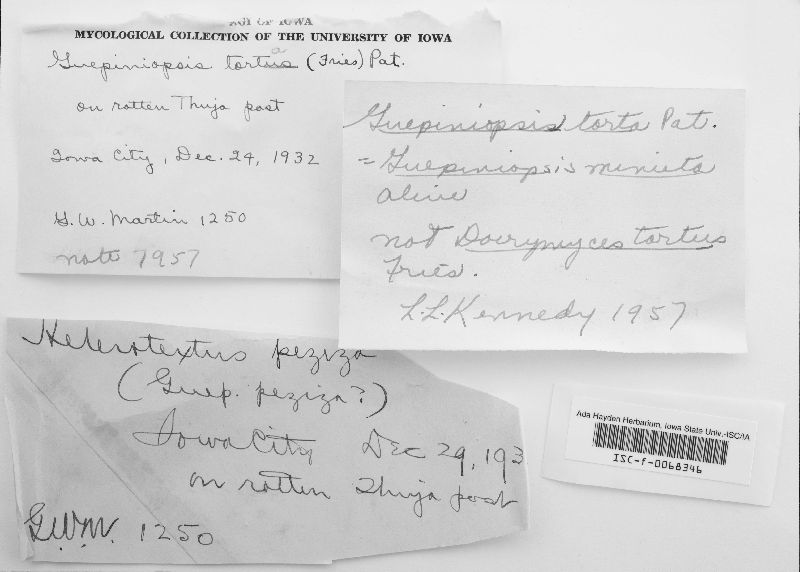 MYCOLOGICAL COLLECTION OF THE UNIVERSITY OF IOWA
Guepiniopsis tortus a (Fries) Pat.
on rotten Thuja post
Iowa City, Dec. 24, 1932
G. W. Martin 1250
note 1957
Guepiniopsis torta Pat.
= Guepiniopsis minuta
Olive
not Dacrymyces tortus
Fries.
L.L. Kennedy 1957
Heterotextus peziza
(Guep. peziza?)
Iowa City Dec 29, 193
on rotten Thuja post
G.W.M. 1250
Ada Hayden Herbarium, Iowa State Univ.-ISC/IA
ISC-f-0068346